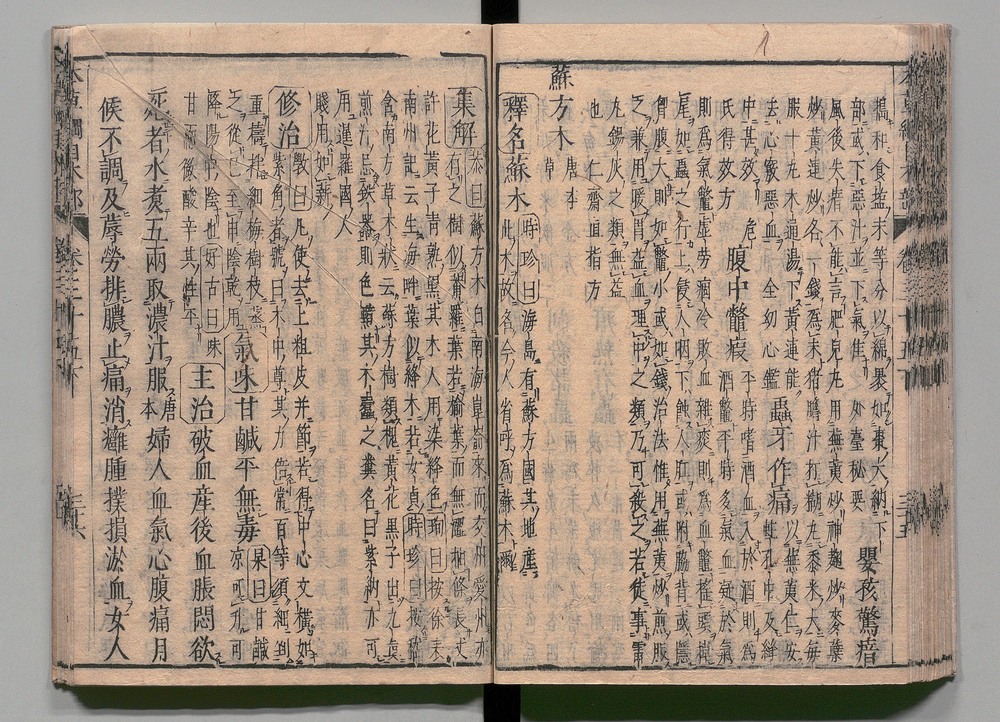 搗和食鹽末等分以綿裹如棗大納下
部或下惡汁並下氣佳外臺秘要 嬰孩驚瘖
風後失瘖不能言肥兒丸用蕪荑炒神麴炒麥蘖
炒黃連炒各一錢爲末猪膽汁打糊丸黍米大每
服十丸木通湯下黃連能
去心竅惡血全幼心鑑 蟲牙作痛以蕪荑仁安蛀孔中及縫
中甚有效
氏得效方 腹中鱉瘕平時嗜酒血入於酒則爲
酒鱉平時多氣血凝於氣
則爲氣鱉虛勞痼冷敗血雜痰則爲血鱉搖頭掉
尾如蟲之行上侵人咽下蝕人肛或附脇背或隱
胸腹大則如鱉小或如錢治法惟用蕪荑炒煎服
之兼用暖胃益血理中之類乃可殺之若徒事雷
丸錫灰之類無益
也仁齋直指方
蘇方木唐本草
釋名蘇木時珍曰海島有蘇方國其地產
此木故名今人省呼爲蘇木爾
集解恭曰蘇方木自南海崑崙來而交州愛州亦
有之樹似菴羅葉若榆葉而無澀抽條長丈
許花黃子青熟黑其木人用染絳色珣曰按徐表
南州記云生海畔葉似絳木若女貞時珍曰按嵇
含南方草木狀云蘇方樹類槐黃花黑子出九真
煎汁忌鐵器則色黯其木蠹之糞名曰紫納亦可
用暹羅國人
賤用如薪
修治斅曰凡使去上粗皮并節若得中心文橫如
紫角者號曰木中尊其力倍常百等須細剉
重擣拌細梅樹枝蒸
之從巳至申陰乾用 氣味甘鹹平無毒杲曰甘鹹
涼可升可
降陽中陰也好古曰味
甘而微酸辛其性平 主治破血產後血脹悶欲
死者水煮五兩取濃汁服唐本婦人血氣心腹痛月
候不調及蓐勞排膿止痛消癰腫撲損淤血女人